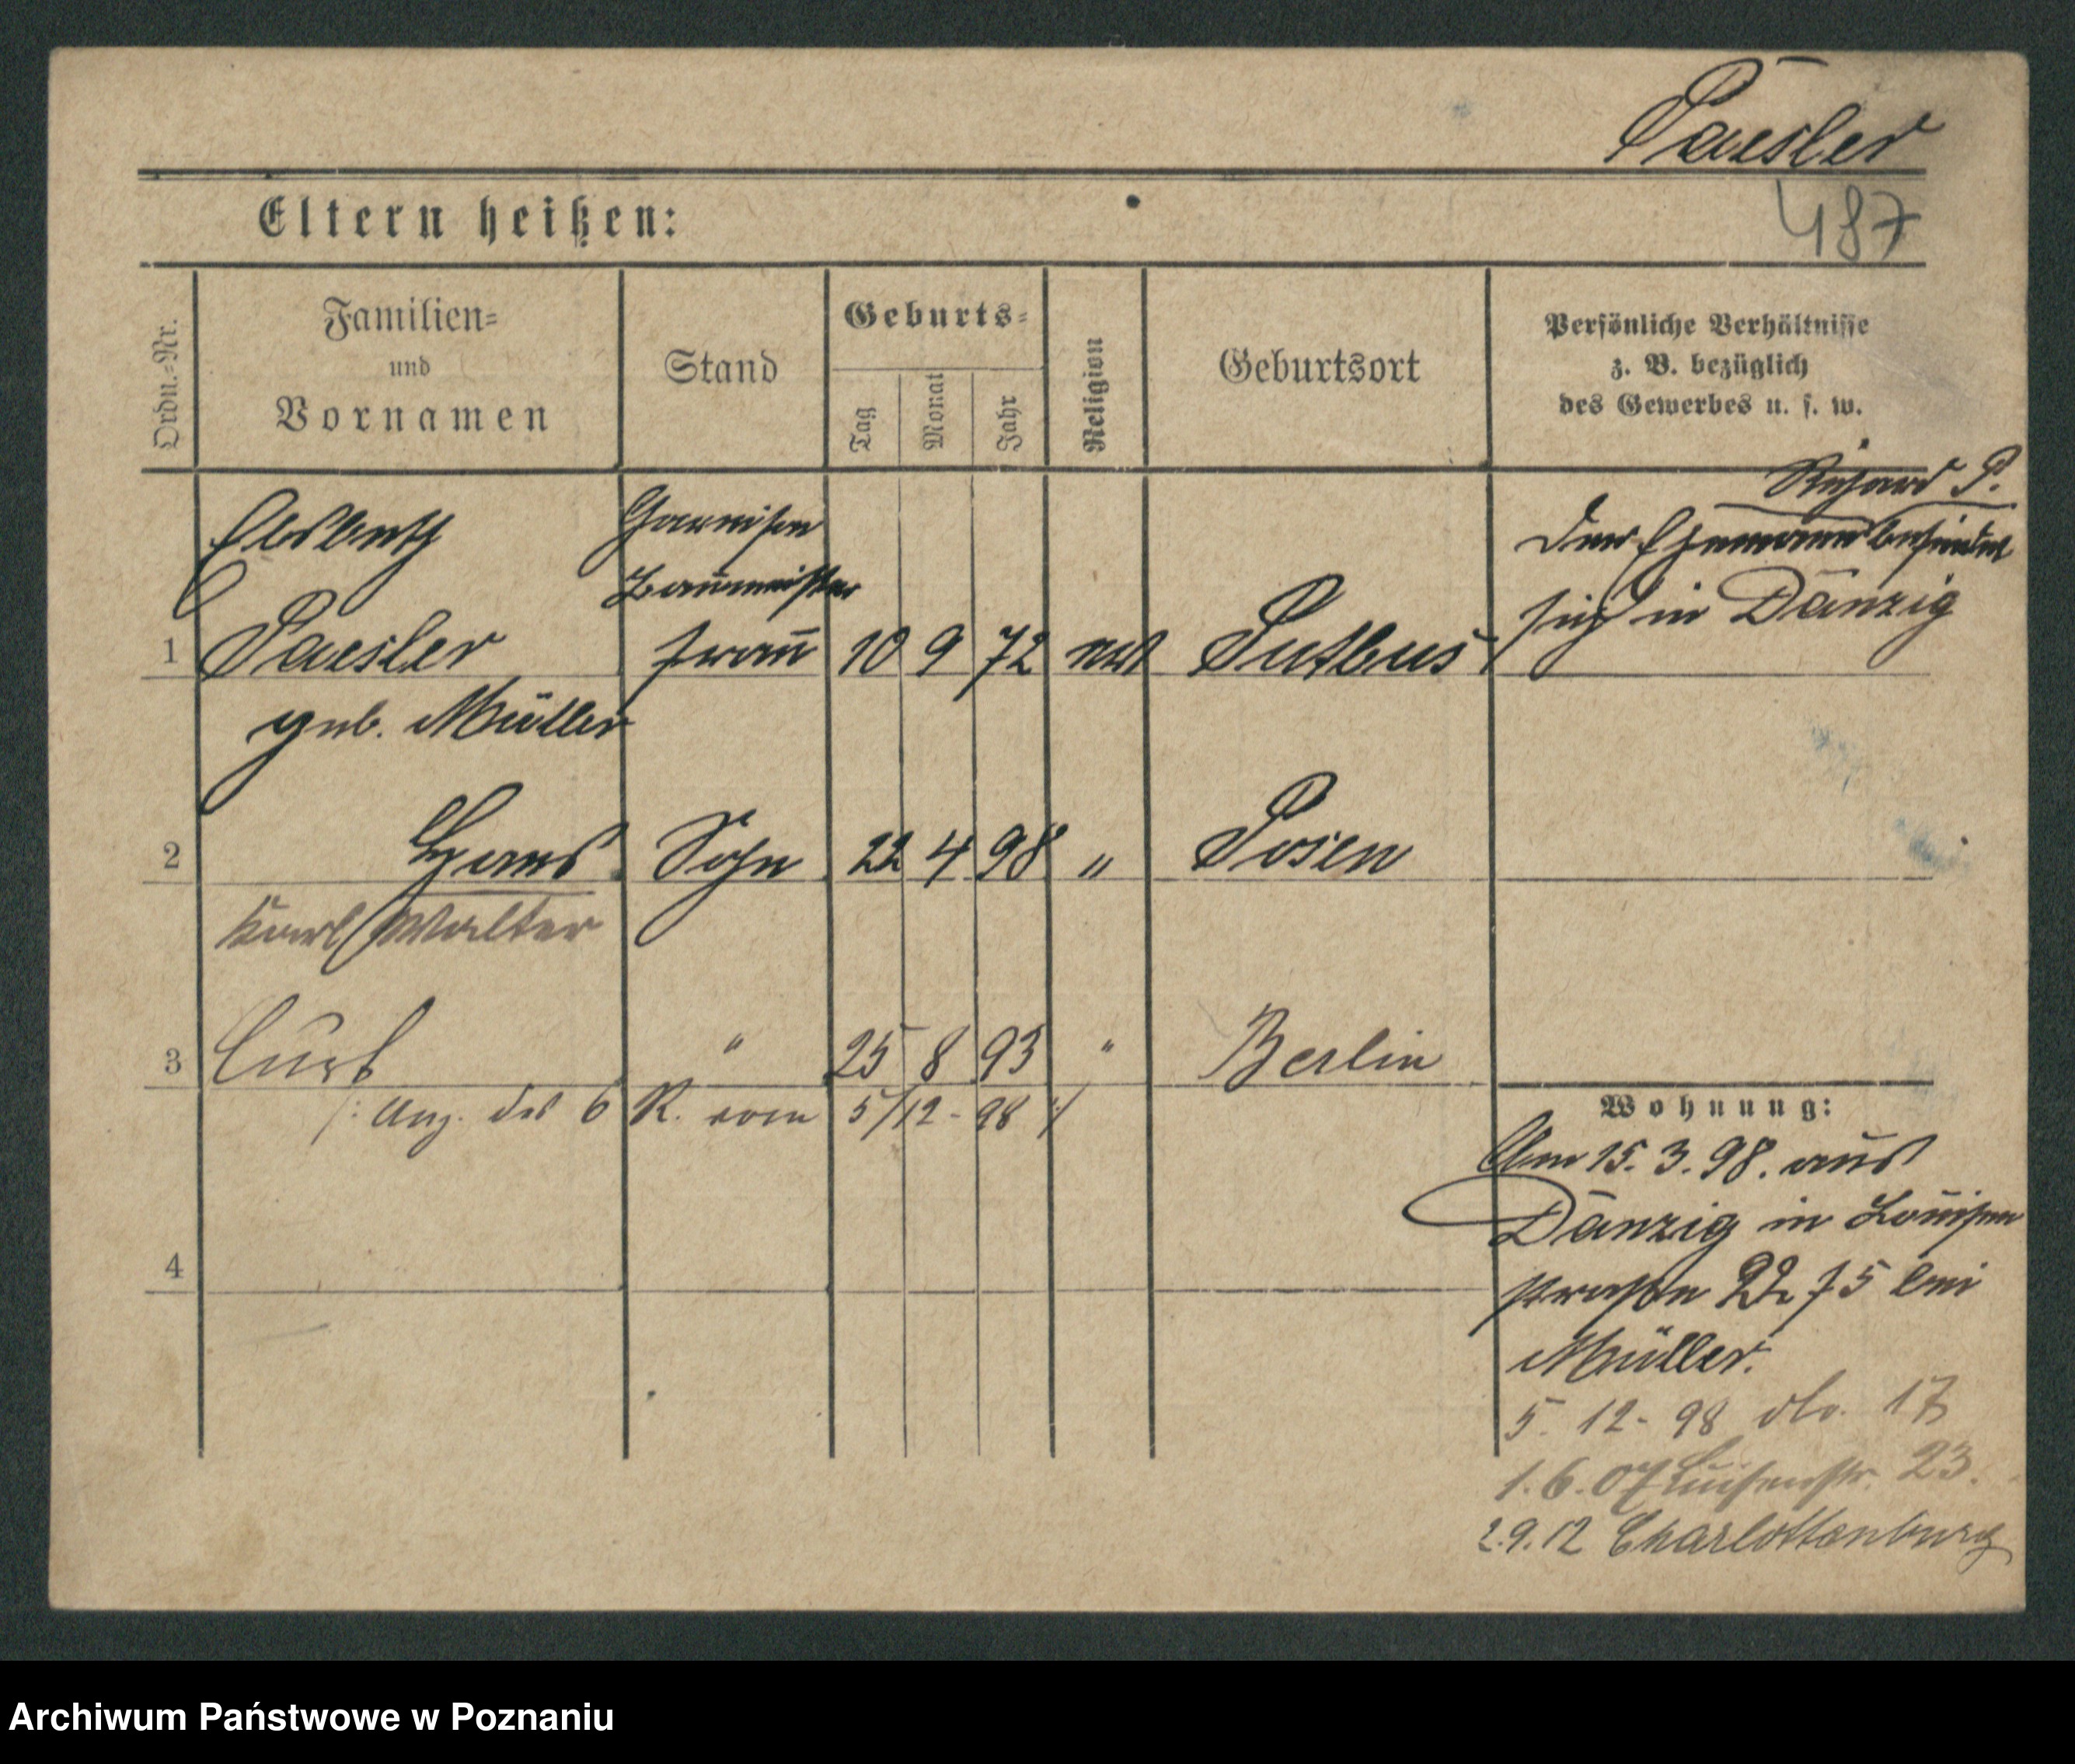 Paesler
487
Eltern heißen:
Ordn.-Nr.
Familien-
und
Vornamen
Stand
Geburts-
Tag
Monat
Jahr
Religion
Geburtsort
Persönliche Verhältnisse
z. B. bezüglich
des Gewerbes u. s. w.
Elsbeth
Garnison
Baumeister
Richard P.
der Ehemann befindet
sich in Danzig
1 Paesler frau 10 9 72 Putbus
geb. Müller
2 Hans Sohn 22 4 98 " Posen
Karl Walter
3 Curt " 25 8 93 " Berlin
/: Anz. des 6 R. vom 5/12-98 :/
4
Wohnung:
Am 15.3.98. aus
Danzig in Louisen
straße 22 bei
Müller.
5. 12-98 do. 17
1.6.07 Luisenstr. 23.
2.9.12 Charlottenburg
Archiwum Państwowe w Poznaniu